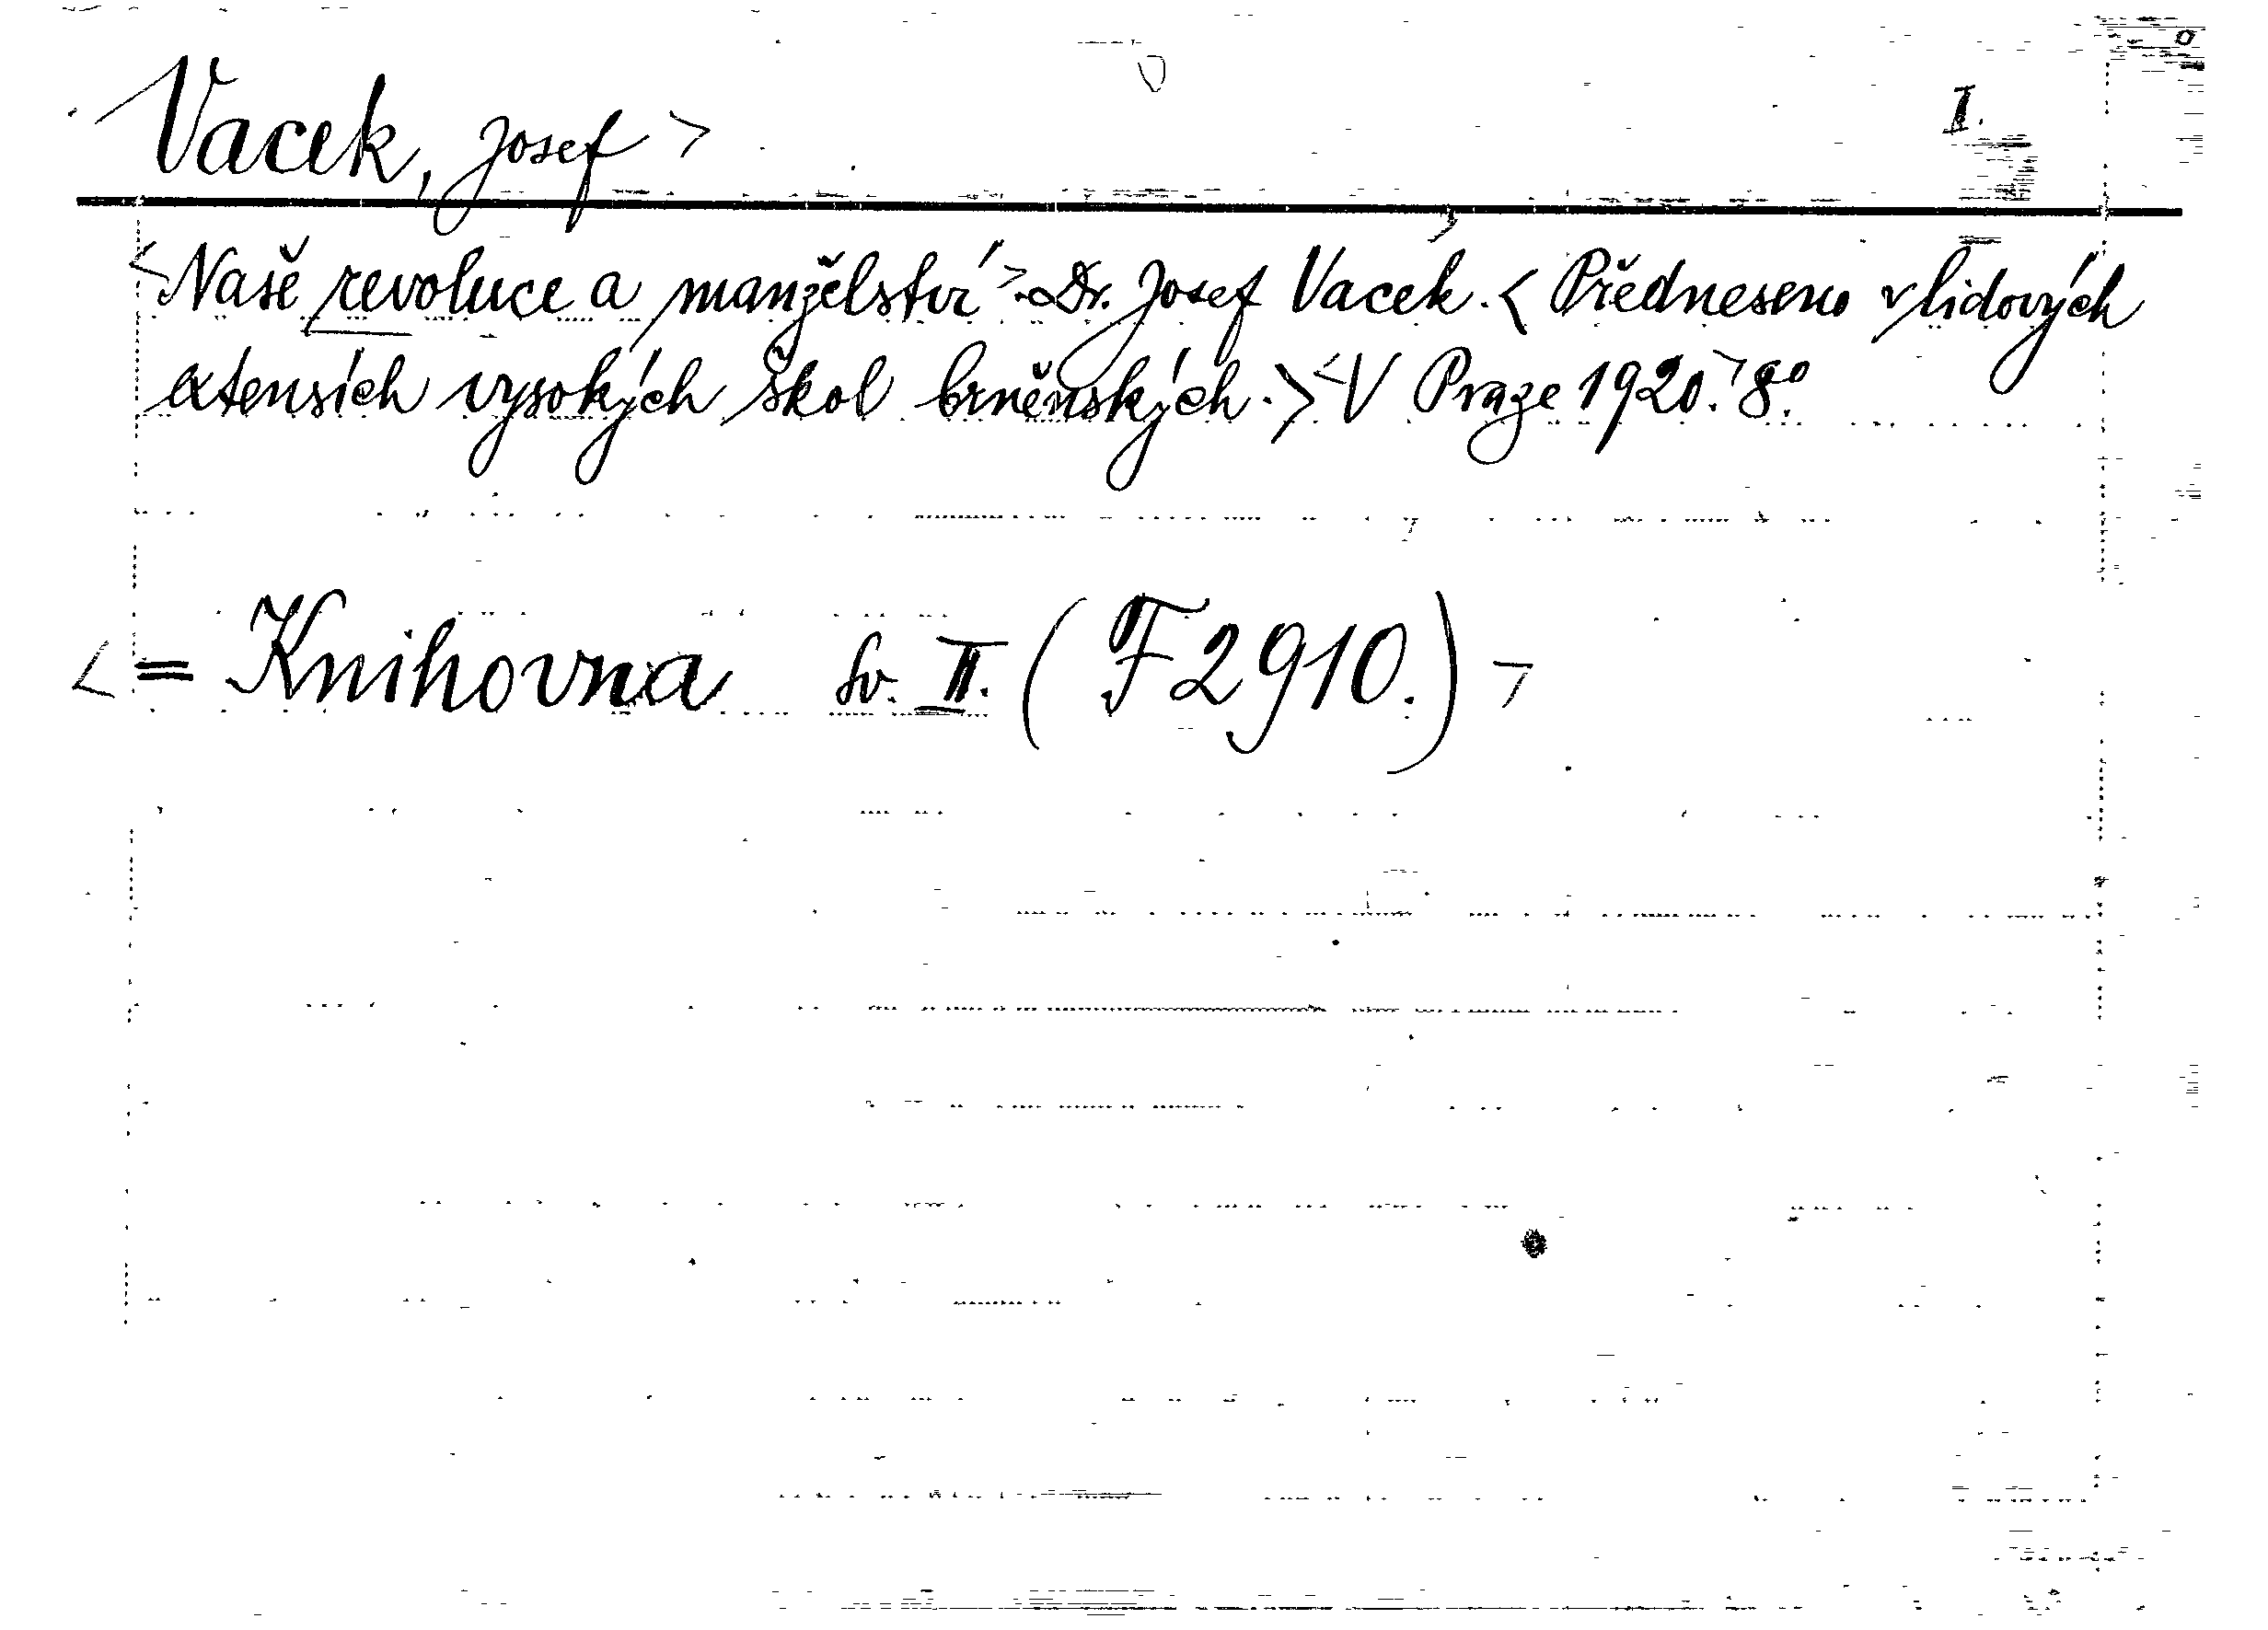 Vacek, Josef >
I.
<Naše revoluce a manželství>. Dr. Josef Vacek. < Předneseno v lidových
extensích vysokých škol brněnských. > <V Praze 1920.> 8º.
< = Knihovna sv. II. (F 2910.) >